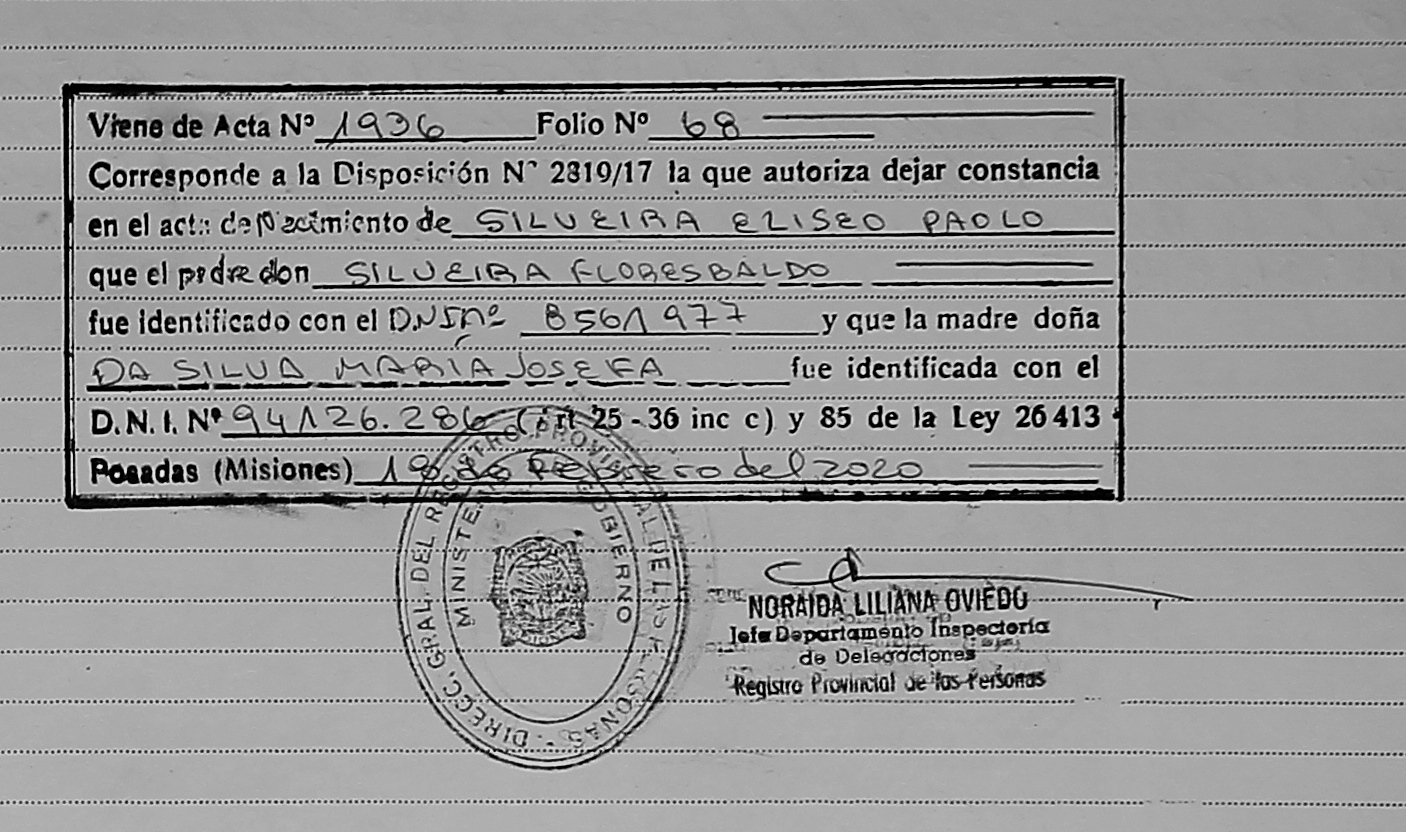 Viene de Acta Nº 1936 Folio Nº 68
Corresponde a la Disposición Nº 2819/17 la que autoriza dejar constancia
en el acta de Nacimiento de SILVEIRA ELISEO PAOLO
que el padre don SILVEIRA FLORESBALDO
fue identificado con el D.N.I nº 8561977 y que la madre doña
DA SILVA MARIA JOSEFA fue identificada con el
D.N.I. Nº 94126.286 (art 25-36 inc c) y 85 de la Ley 26413
Posadas (Misiones) 19 de Febrero del 2020
DIRECC. GRAL. DEL REGISTRO PROVINCIAL DE LAS PERSONAS
MINISTERIO GOBIERNO
NORAIDA LILIANA OVIEDO
Jefa Departamento Inspectoría
de Delegaciones
Registro Provincial de las Personas